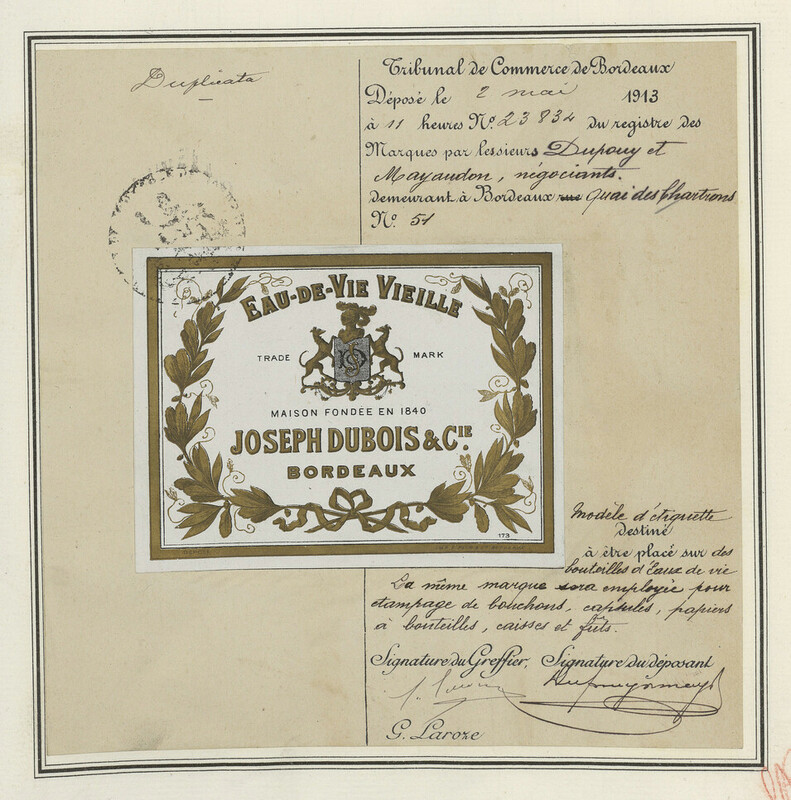 Duplicata
Tribunal de Commerce de Bordeaux
Déposé le 2 mai 1913
à 11 heures No. 23834 du registre des
Marques par lessieurs Dupouy et
Mayaudon, négociants.
demeurant à Bordeaux rue Quai des Chartrons
No. 51
EAU-DE-VIE VIEILLE
TRADE MARK
MAISON FONDÉE EN 1840
JOSEPH DUBOIS & CIE.
BORDEAUX
173
Modèle d'étiquette
destiné
à être placé sur des
bouteilles d'Eaux de vie
La même marque sera employée pour
étampage de bouchons, capsules, papiers
à bouteilles, caisses et fûts.
Signature du Greffier, Signature du déposant
G. Laroze